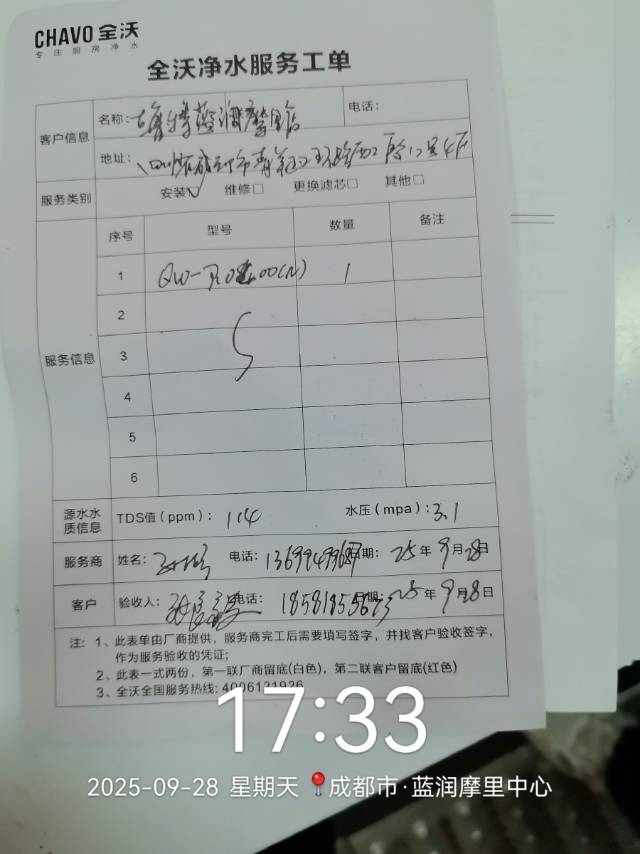 CHAVO 全沃
专注厨房净水
全沃净水服务工单
客户信息
名称: 蓝润摩里店 电话:
地址: 四川省成都市青羊区
服务类别 安装☑ 维修□ 更换滤芯□ 其他□
服务信息
序号 型号 数量 备注
1 QW- 1
2
3
4
5
6
源水水质信息 TDS值(ppm): 104 水压(mpa): 3.1
服务商 姓名: 电话: 日期: 25年9月28日
客户 验收人: 电话: 日期: 25年9月28日
注: 1、此表单由厂商提供,服务商完工后需要填写签字,并找客户验收签字,
作为服务验收的凭证;
2、此表一式两份,第一联厂商留底(白色),第二联客户留底(红色)
3、全沃全国服务热线: 4006121926
17:33
2025-09-28 星期天 成都市·蓝润摩里中心